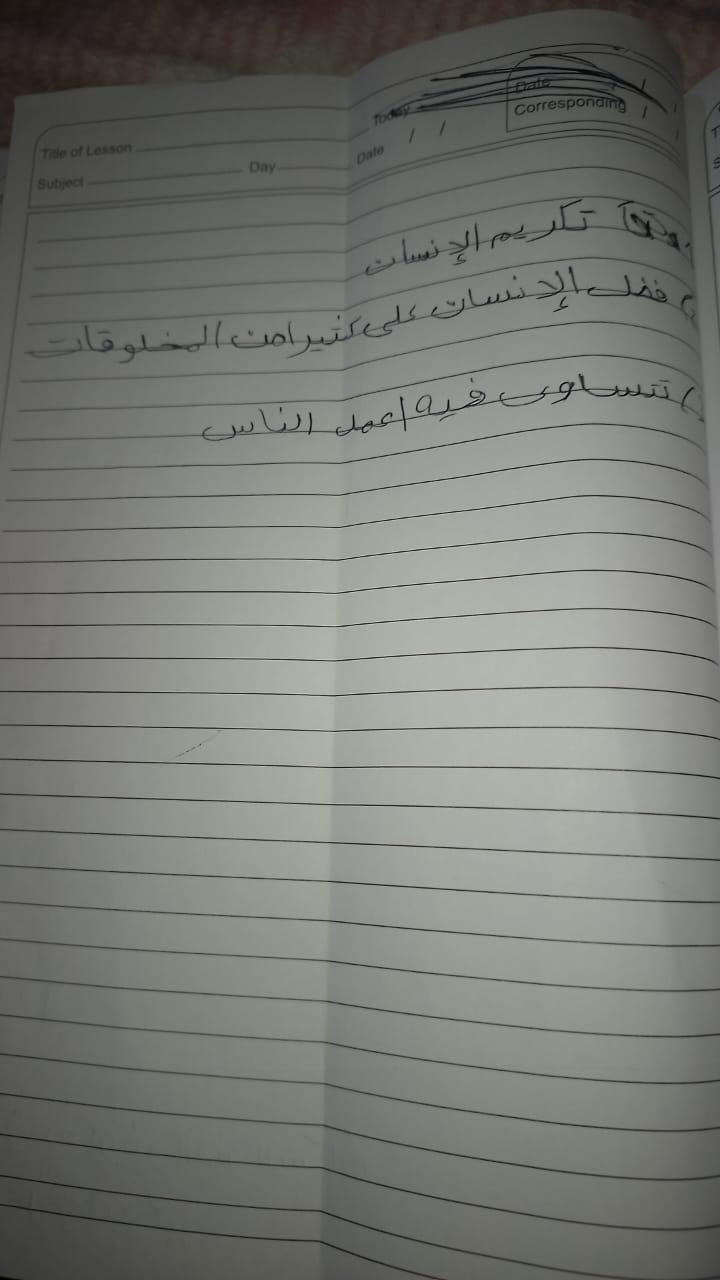 Title of Lesson
Subject Day
Today
Date / /
Date /
Corresponding / /
تكريم الإنسان
فضل الإنسان على كثيرا من المخلوقات
تتساوى فيه اعمل الناس